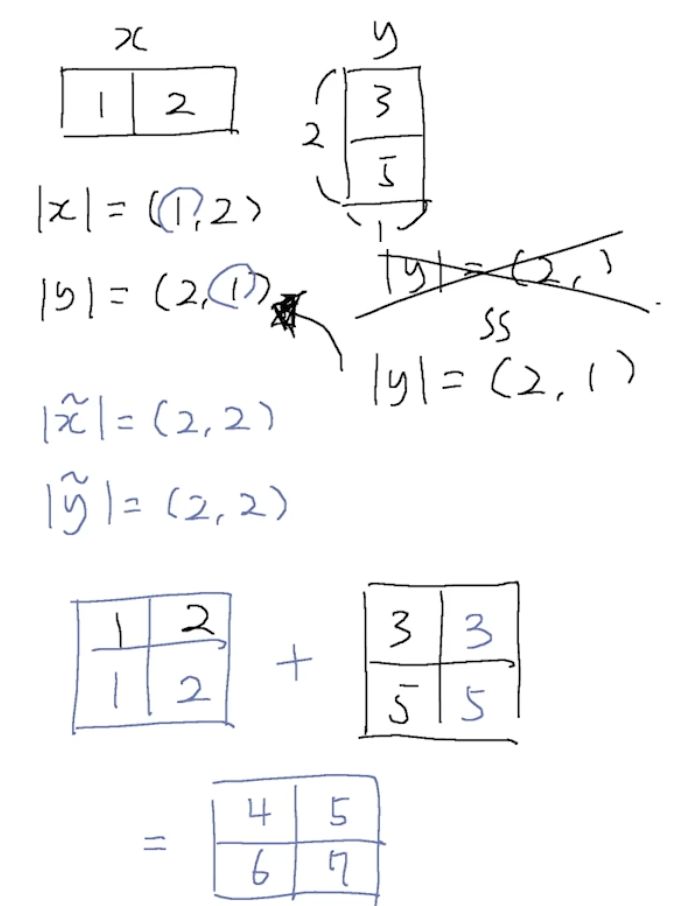 x
y
1 2
3
2
5
1
|x| = (1, 2)
|y| = (2, )
|y| = (2, 1)
ss
|y| = (2, 1)
|x̃| = (2, 2)
|ỹ| = (2, 2)
1 2
1 2
+
3 3
5 5
=
4 5
6 7